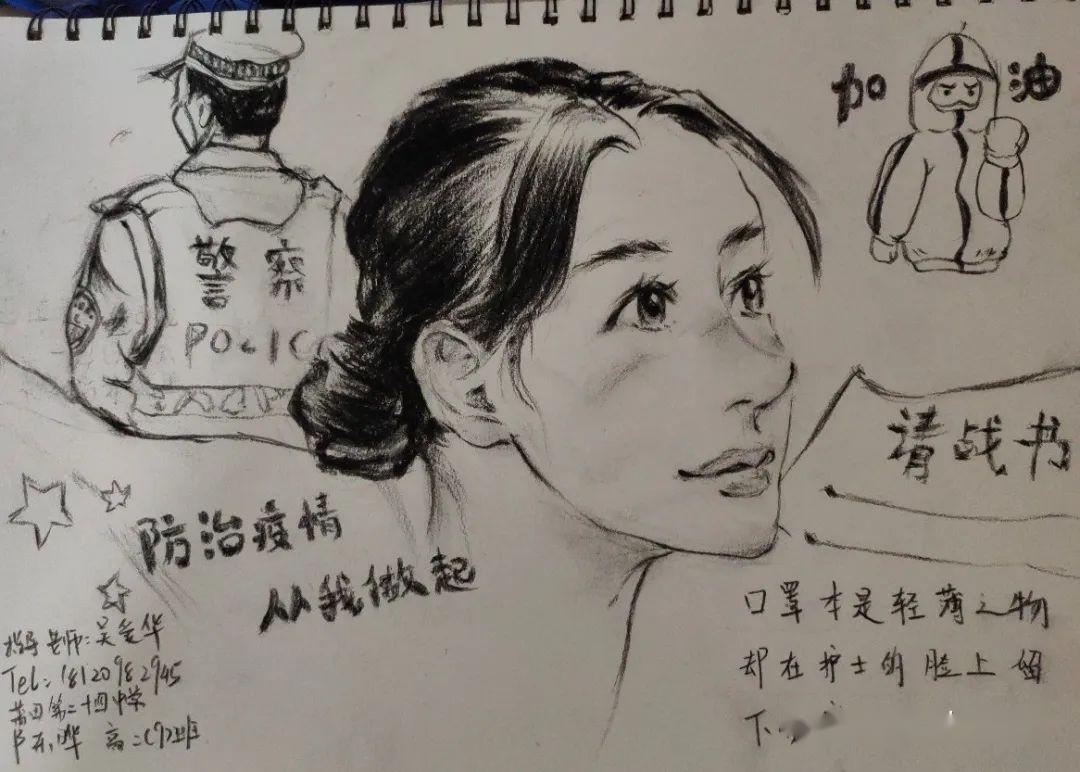 加油
警察
POLIC
请战书
防治疫情
从我做起
口罩本是轻薄之物
却在护士的脸上留
下
指导老师:吴
华
Tel: 18120982945
莆田第二十四中学
高二(7)班